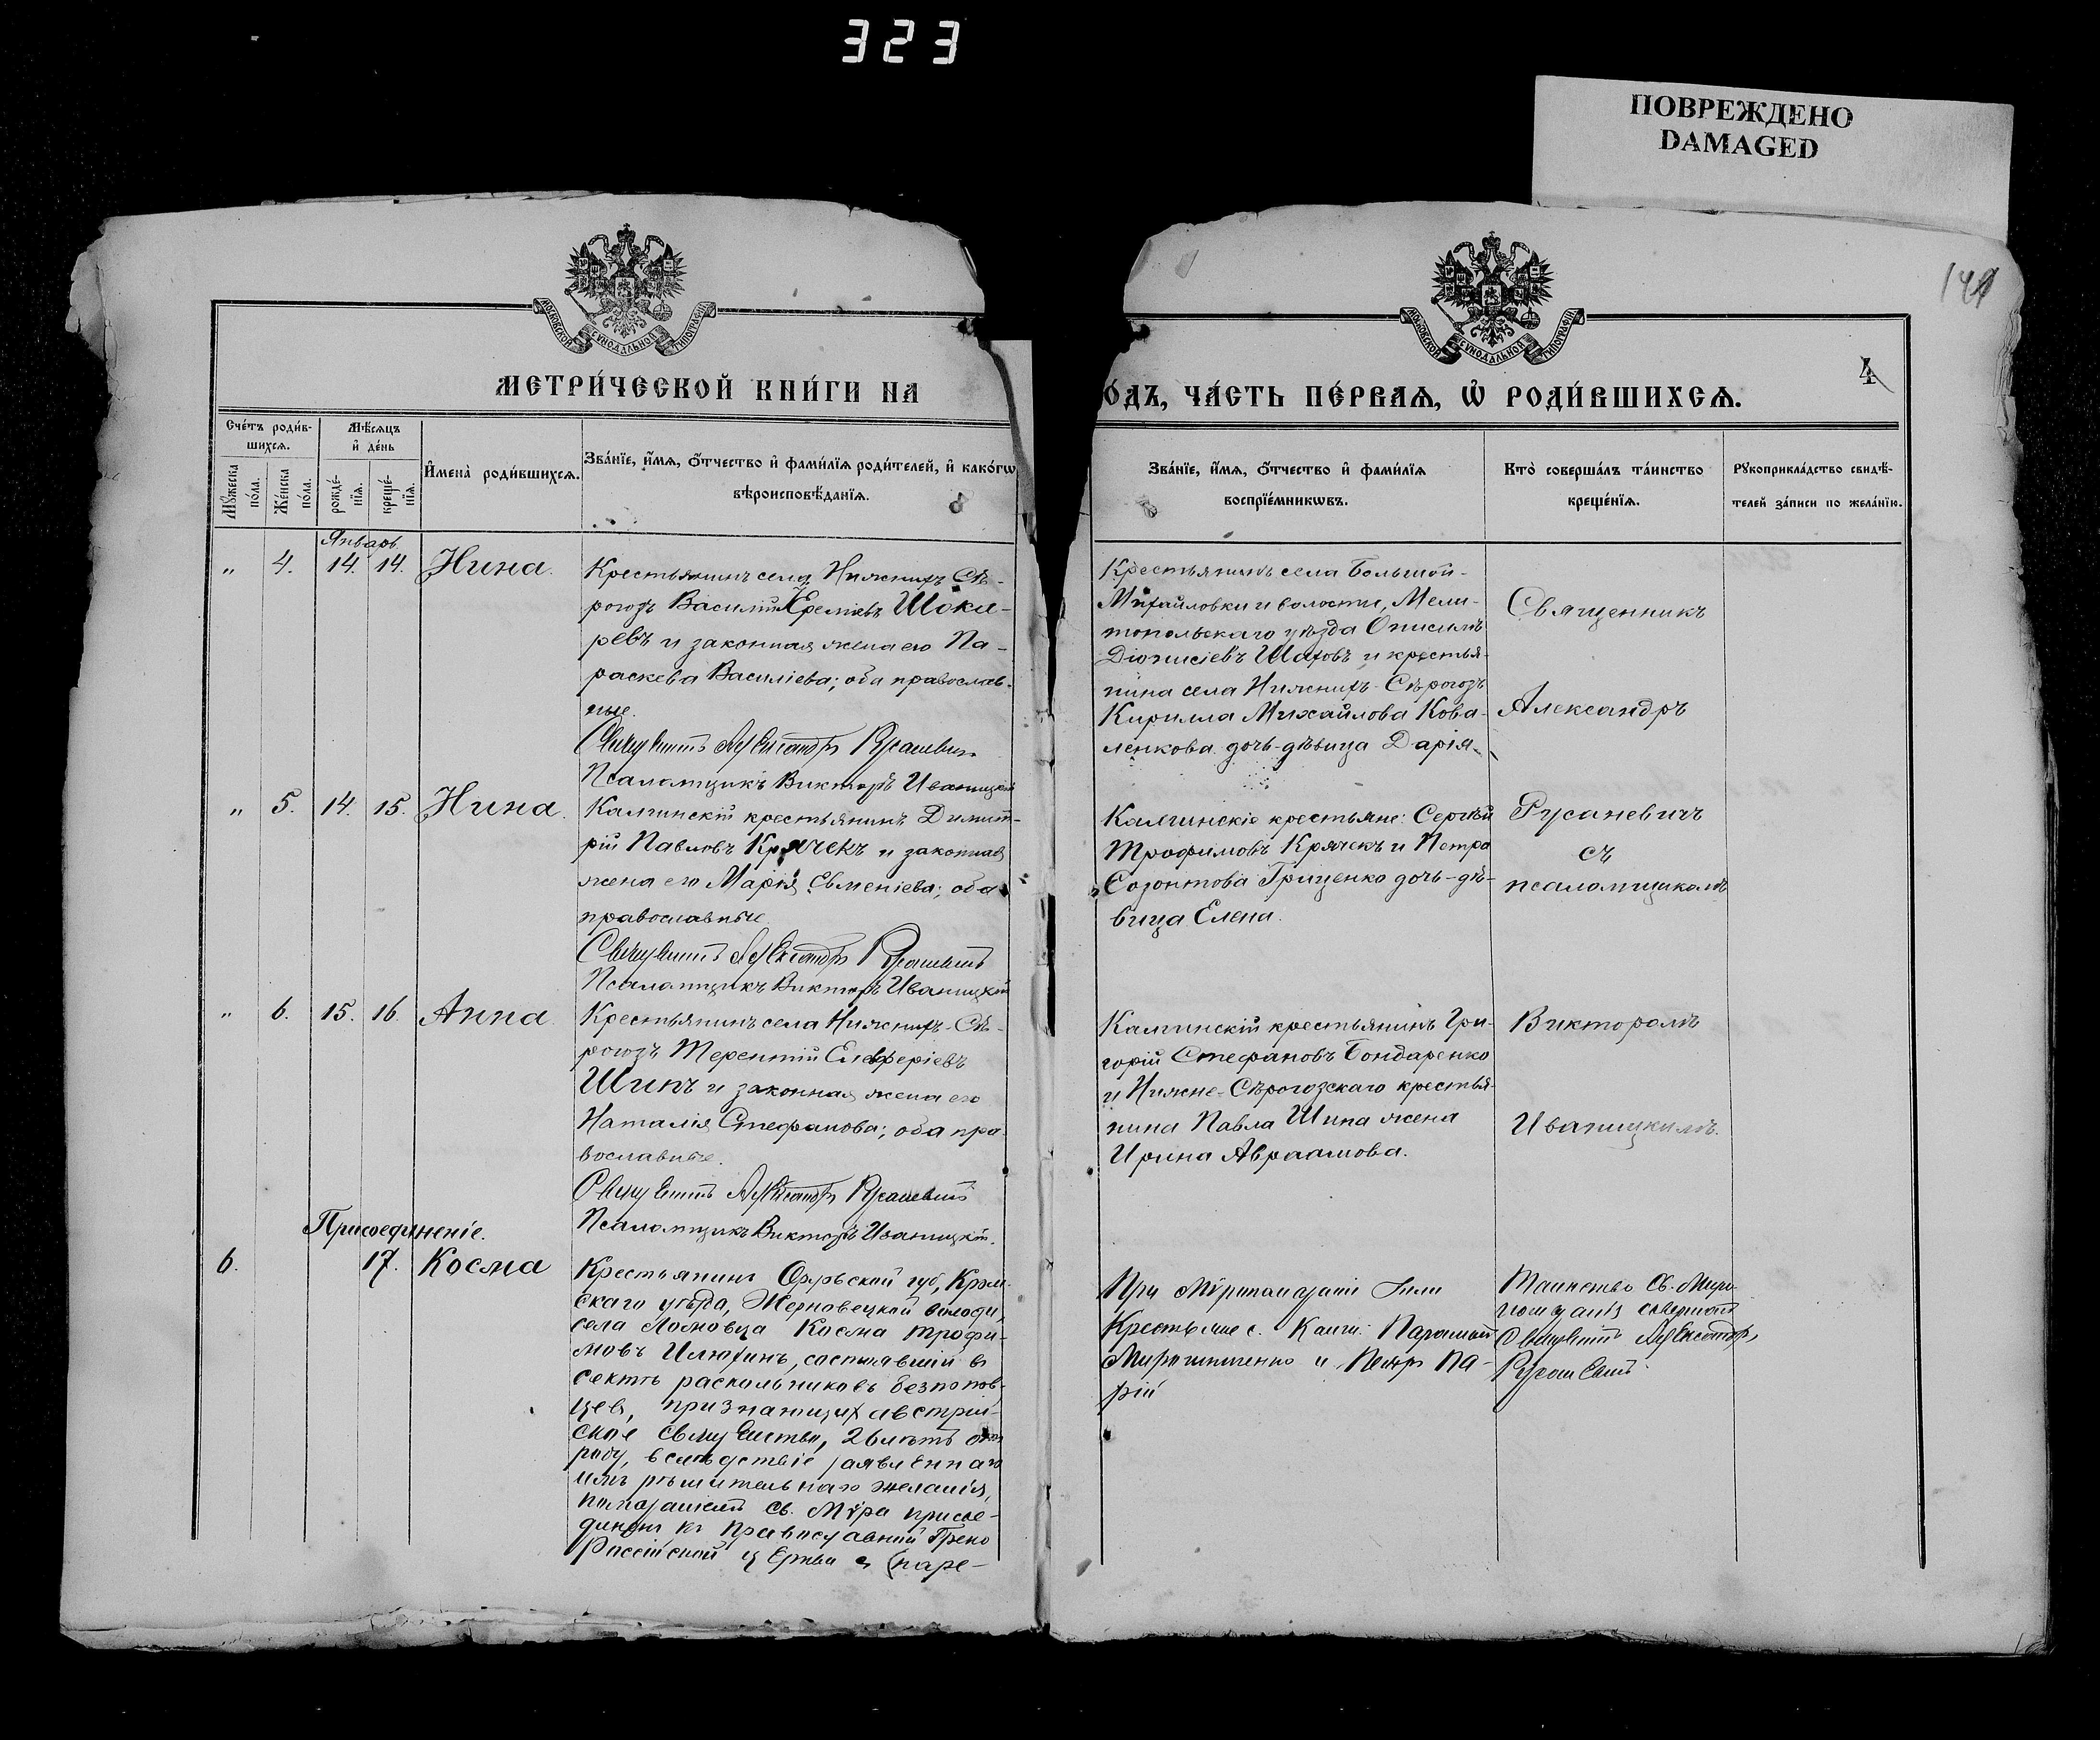 323
ПОВРЕЖДЕНО
DAMAGED
141
4
МОСКОВСКОЙ СѴНОДАЛЬНОЙ ТИПОГРАФІИ
МОСКОВСКОЙ СѴНОДАЛЬНОЙ ТИПОГРАФІИ
МЕТРИ́ЧЕСКОЙ КНИ́ГИ НА
ОДЪ, ЧА́СТЬ ПЕ́РВАѦ, Ѡ҆ РОДИ́ВШИХСѦ.
Сче́тъ роди́в-
шихсѧ.
Мѣ́сѧцъ
и҆ де́нь
Мꙋ́жеска по́ла.
Же́нска по́ла.
рожде́-
нїѧ.
креще́-
нїѧ.
И҆мена̀ роди́вшихсѧ.
Зва́нїе, и҆́мѧ, ѻ҆́тчество и҆ фами́лїѧ роди́телей, и҆ како́гѡ
вѣроисповѣ́данїѧ.
Зва́нїе, и҆́мѧ, ѻ҆́тчество и҆ фами́лїѧ
воспрїе́мникѡвъ.
Кто̀ соверша́лъ та́инство
креще́нїѧ.
Рꙋкоприкла́дство свидѣ́-
телей за́писи по жела́нїю.
Январь
" 4. 14. 14. Нина.
Крестьянинъ села Нижнихъ Сѣ-
рогозъ Василій Ереміевъ Шока-
ревъ и законная жена его Па-
раскева Василіева; оба православ-
ные.
Священникъ Александръ Русаневичъ
Псаломщикъ Викторъ Иваницкій
Крестьянинъ села Большой-
Михайловки и волости, Мели-
топольскаго уѣзда Онисимъ
Діонисіевъ Шатовъ и крестья-
нина села Нижнихъ-Сѣрогозъ
Кирилла Михайлова Кова-
ленкова дочь-дѣвица Дарія.
Священникъ
Александръ
" 5. 14. 15. Нина.
Калгинскій крестьянинъ Димит-
рій Павловъ Крячекъ и законная
жена его Марія Евменіева; оба
православные.
Священникъ Александръ Русаневичъ
Псаломщикъ Викторъ Иваницкій
Калгинскіе крестьяне: Сергѣй
Трофимовъ Крячекъ и Петра
Созонтова Гриценко дочь-дѣ-
вица Елена.
Русаневичъ
съ
псаломщикомъ
" 6. 15. 16. Анна
Крестьянинъ села Нижнихъ-Сѣ-
рогозъ Терентій Елевферіевъ
Шипъ и законная жена его
Наталія Стефанова; оба пра-
вославные.
Священникъ Александръ Русаневичъ
Псаломщикъ Викторъ Иваницкій.
Калгинскій крестьянинъ Гри-
горій Стефановъ Бондаренко
и Нижне-Сѣрогозскаго крестья-
нина Павла Шипа жена
Ирина Авраамова.
Викторомъ
Иваницкимъ.
Присоединеніе.
6. 17. Косма
Крестьянинъ Орловской губ, Кром-
скаго уѣзда, Жерновецкой волости,
села Ломовца Косма Трофи-
мовъ Илютинъ, состоявшій въ
сектѣ раскольниковъ безпопов-
цевъ, признающихъ австрій-
ское священство, 26 лѣтъ отъ
роду, вслѣдствіе заявленнаго
имъ рѣшительнаго желанія,
помазаніемъ Св. Мѵра присое-
диненъ къ Православной Греко
Россійской Церкви и (наре-
При Мѵропомазаніи были
Крестьяне с. Калги:
Мирошниченко и Петръ Па-
рій
Таинство Св. Мѵро-
помазанія совершилъ
Священникъ Александръ
Русаневичъ